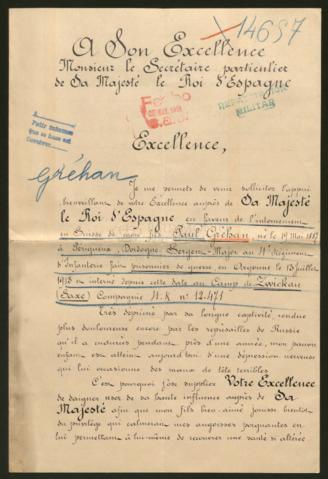 14657
A Son Excellence
Monsieur le Secrétaire particulier
de Sa Majesté le Roi d'Espagne
MILITAR
Excellence,
Gréhan.
Je me permets de venir solliciter l'appui
bienveillant de votre Excellence auprès de Sa Majesté
le Roi d'Espagne en faveur de l'internement
en Suisse de mon fils Paul Gréhan, né le 19 Mai 1887
à Périgueux, Dordogne, Sergent-Major au Régiment
d'Infanterie fait prisonnier de guerre en Argonne le 13 juillet
1915 et interné depuis cette date au Camp de Zwickau
(Saxe) Compagnie 4.K n° 12.471
Très déprimé par sa longue captivité rendue
plus douloureuse encore par les représailles de Russie
qu'il a endurées pendant près d'une année, mon pauvre
enfant est atteint aujourd'hui d'une dépression nerveuse
qui lui occasionne des maux de tête terribles
C'est pourquoi j'ose supplier Votre Excellence
de daigner user de sa haute influence auprès de Sa
Majesté afin que mon fils bien-aimé jouisse bientôt
du privilège qui calmerait mes angoisses poignantes en
lui permettant à lui-même de recouvrer une santé si altérée